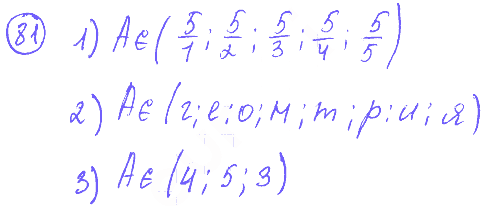 81 1) A∈(5/1; 5/2; 5/3; 5/4; 5/5)
2) A∈(г; е; о; м; т; р; и; я)
3) A∈(4; 5; 3)